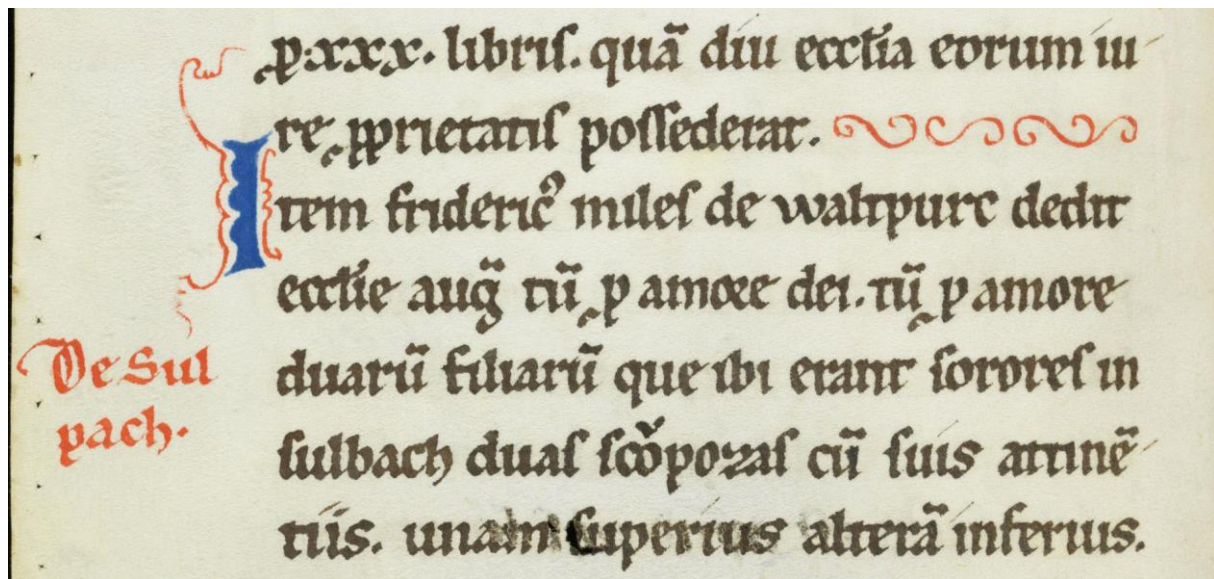 ꝓ·xxx· libris. quā diu eccl̄ia eorum iu
re ꝓprietatis possederat.
Item frideric᷒ miles de waltpurc dedit
eccl̄ie aug̃ tū ꝓ amore dei. tū ꝓ amore
duarū filiarū que ibi erant sorores in
De Sul
sulbach duas scōpozas cū suis attinē
pach.
tiis. unam superius alterā inferius.